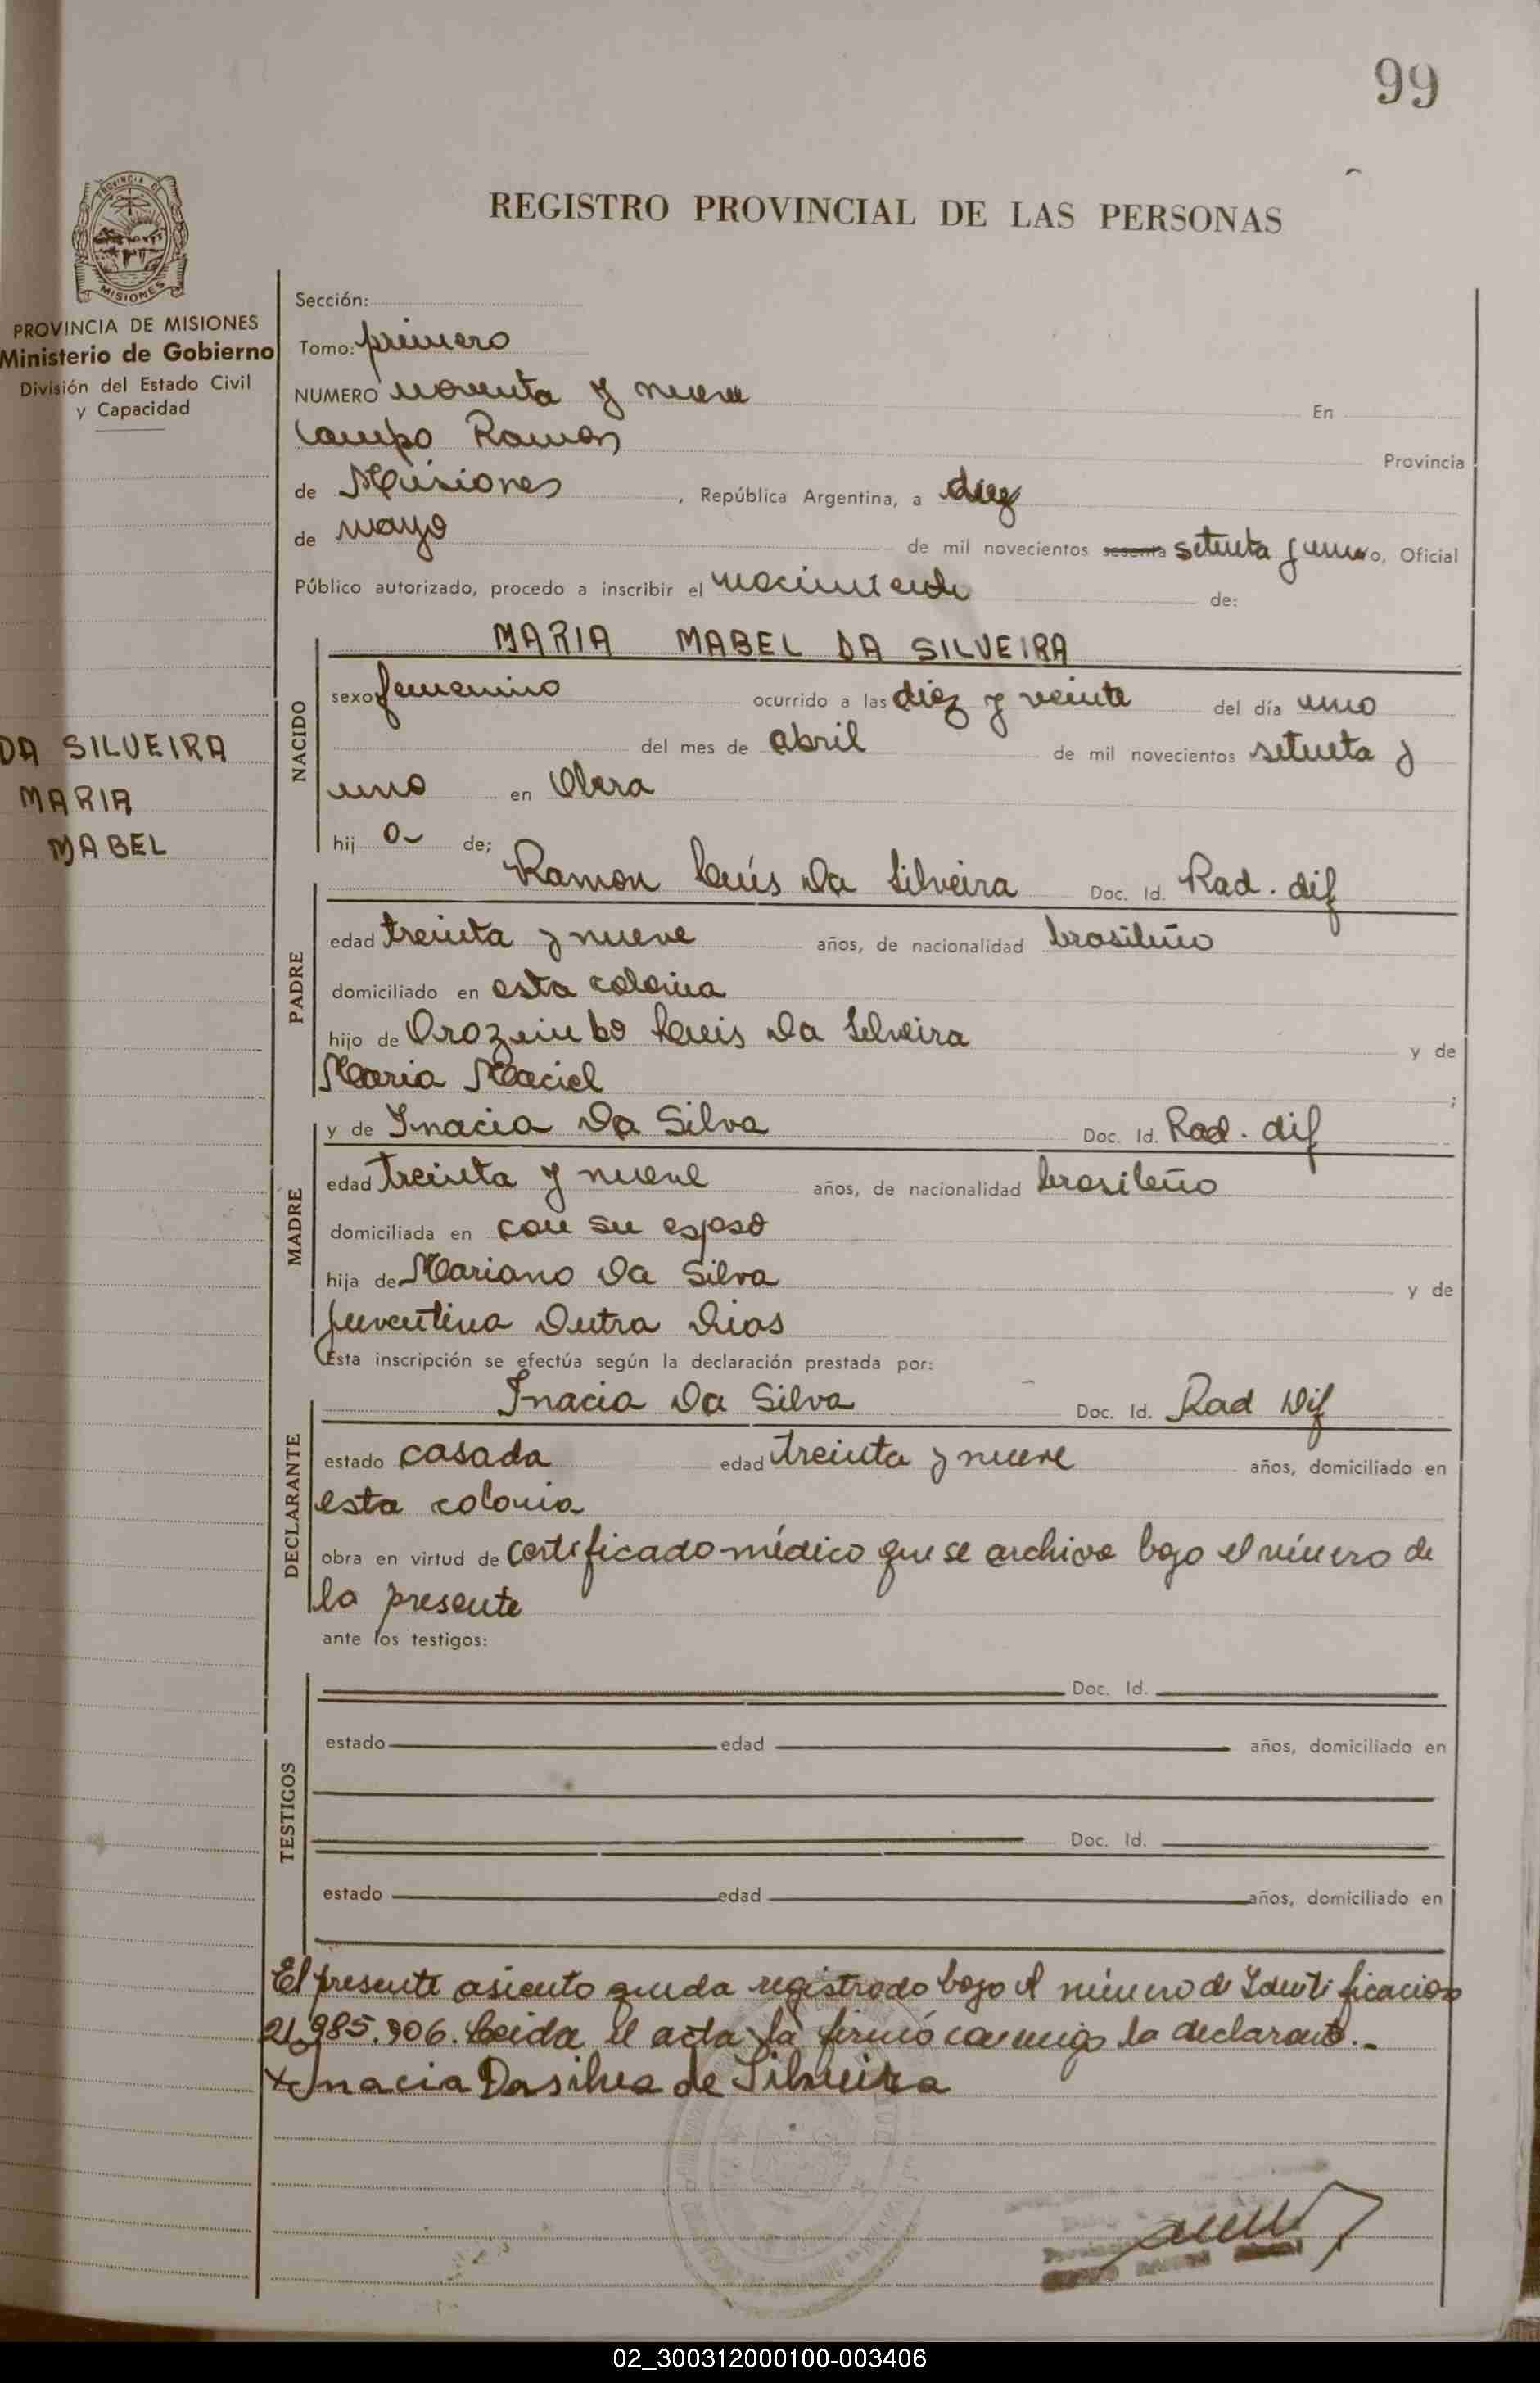 99
REGISTRO PROVINCIAL DE LAS PERSONAS
PROVINCIA DE
MISIONES
PROVINCIA DE MISIONES
Ministerio de Gobierno
División del Estado Civil
y Capacidad
Sección:
Tomo: primero
NUMERO noventa y nueve En
Campo Ramon Provincia
de Misiones, República Argentina, a diez
de mayo de mil novecientos sesenta setenta y uno, Oficial
Público autorizado, procedo a inscribir el nacimiento de:
MARIA MABEL DA SILVEIRA
DA SILVEIRA
MARIA
MABEL
NACIDO
sexo femenino ocurrido a las diez y veinte del día uno
del mes de abril de mil novecientos setenta y
uno en Obera
hij a de;
PADRE
Ramon Luis Da Silveira Doc. Id. Rad. dif
edad treinta y nueve años, de nacionalidad brasileño
domiciliado en esta colonia
hijo de Orozimbo Luis Da Silveira y de
Maria Maciel ;
MADRE
y de Inacia Da Silva Doc. Id. Rad. dif
edad treinta y nueve años, de nacionalidad brasileño
domiciliada en con su esposo
hija de Mariano Da Silva y de
Juventina Dutra Dias
Esta inscripción se efectúa según la declaración prestada por:
DECLARANTE
Inacia Da Silva Doc. Id. Rad Dif
estado casada edad treinta y nueve años, domiciliado en
esta colonia
obra en virtud de certificado médico que se archiva bajo el número de
la presente
ante los testigos:
TESTIGOS
Doc. Id.
estado edad años, domiciliado en
Doc. Id.
estado edad años, domiciliado en
El presente asiento queda registrado bajo el número de Identificacion
21.985.906. Leida el acta la firmó conmigo la declarante.-
x Inacia Dasilva de Silveira
02_300312000100-003406